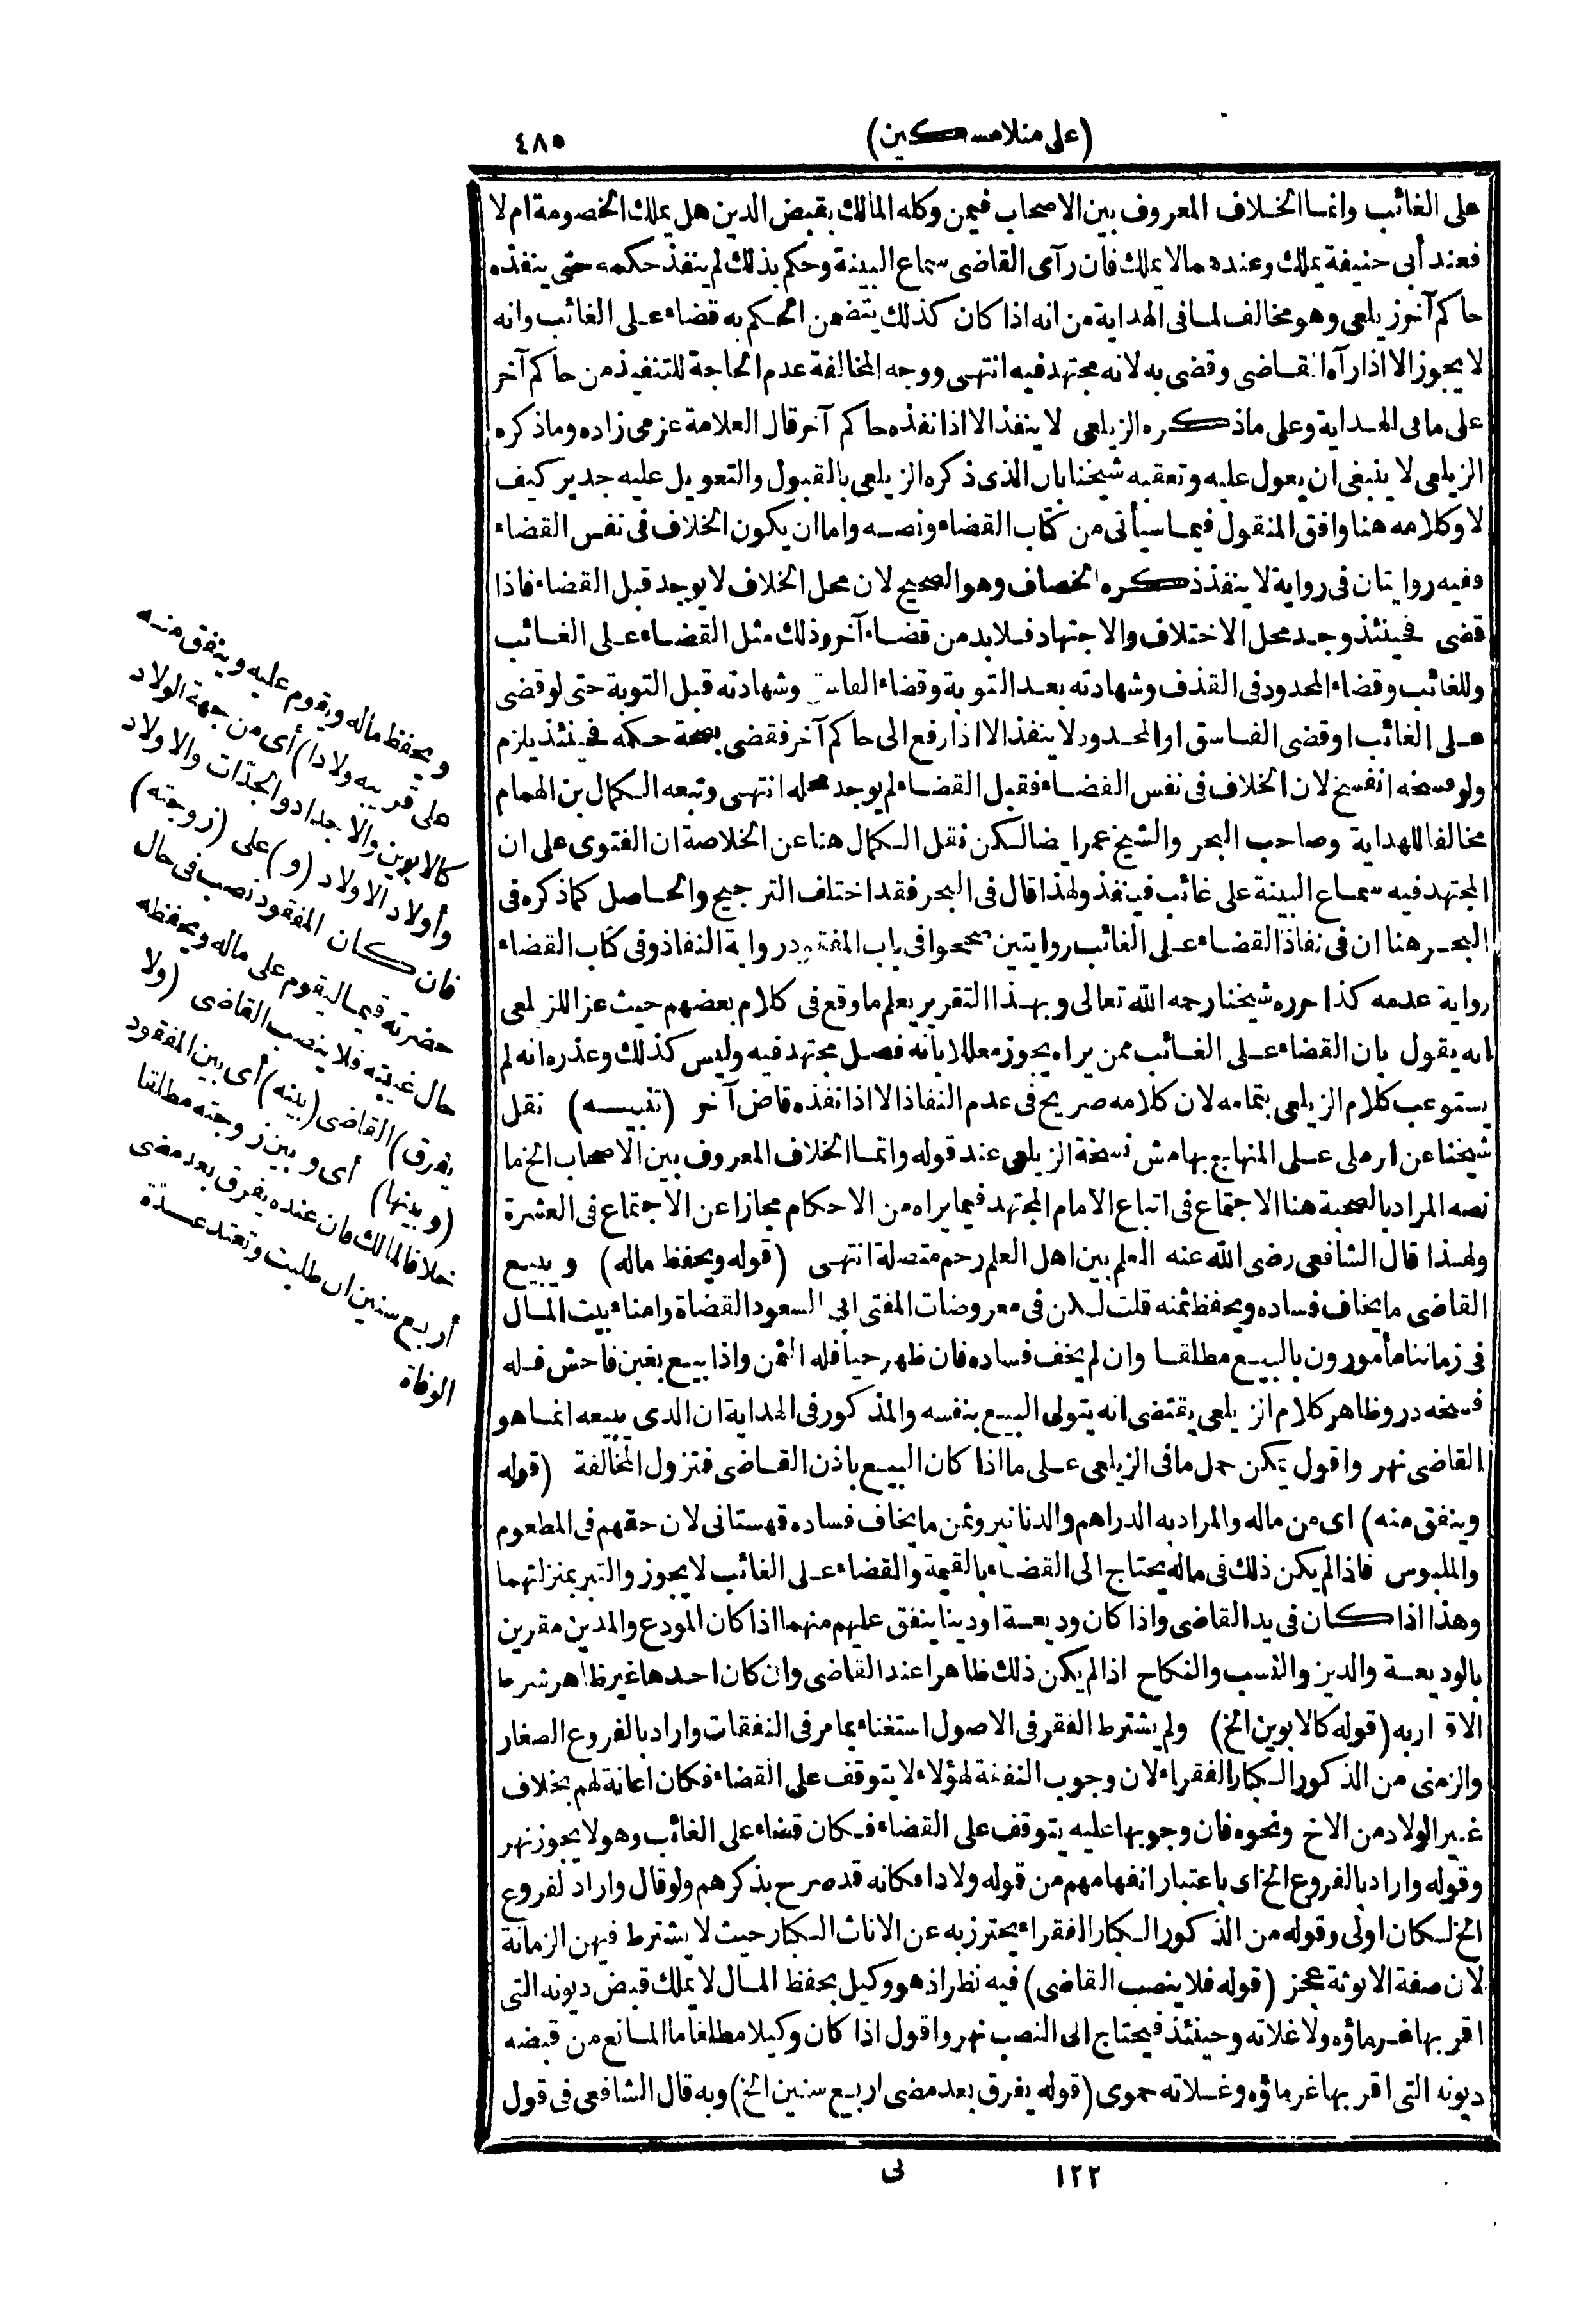 (على منلا مسكين)
٤٨٥
على الغائب وانما الخلاف المعروف بين الاصحاب فيمن وكله المالك بقبض الدين هل يملك الخصومة ام لا
فعند أبى حنيفة يملك وعندهما لا يملك فان رآى القاضى سماع البينة وحكم بذلك لم ينفذ حكمه حتى ينفذه
حاكم آخر زيلعى وهو مخالف لما فى الهداية من انه اذا كان كذلك يتضمن الحكم به قضاء على الغائب وانه
لا يجوز الا اذا رآه القاضى وقضى به لانه مجتهد فيه انتهى ووجه المخالفة عدم الحاجة للتنفيذ من حاكم آخر
على ما فى الهداية وعلى ما ذكره الزيلعى لا ينفذ الا اذا نفذه حاكم آخر قال العلامة عزمى زاده وما ذكره
الزيلعى لا ينبغى ان يعول عليه وتعقبه شيخنا بان الذى ذكره الزيلعى بالقبول والتعويل عليه جدير كيف
لا وكلامه هنا وافق المنقول فيما سيأتى من كتاب القضاء ونصه واما ان يكون الخلاف فى نفس القضاء
ففيه روايتان فى رواية لا ينفذ ذكره الخصاف وهو الصحيح لان محل الخلاف لا يوجد قبل القضاء فاذا
قضى فحينئذ وجد محل الاختلاف والاجتهاد فلا بد من قضاء آخر وذلك مثل القضاء على الغائب
وللغائب وقضاء المحدود فى القذف وشهادته بعد التوبة وقضاء الفاسق وشهادته قبل التوبة حتى لو قضى
على الغائب او قضى الفاسق او المحدود لا ينفذ الا اذا رفع الى حاكم آخر فقضى بصحة حكمه فحينئذ يلزم
ولو فسخه انفسخ لان الخلاف فى نفس القضاء فقبل القضاء لم يوجد محله انتهى وتبعه الكمال بن الهمام
مخالفا للهداية وصاحب البحر والشيخ عمر ايضا لكن نقل الكمال هنا عن الخلاصة ان الفتوى على ان
المجتهد فيه سماع البينة على غائب فينفذ ولهذا قال فى البحر فقد اختلف الترجيح والحاصل كما ذكره فى
البحر هنا ان فى نفاذ القضاء على الغائب روايتين صححوا فى باب المفقود رواية النفاذ وفى كتاب القضاء
رواية عدمه كذا حرره شيخنا رحمه الله تعالى وبهذا التقرير يعلم ما وقع فى كلام بعضهم حيث عزا للزيلعى
انه يقول بان القضاء على الغائب ممن يراه يجوز معللا بانه فصل مجتهد فيه وليس كذلك وعذره انه لم
يستوعب كلام الزيلعى بتمامه لان كلامه صريح فى عدم النفاذ الا اذا نفذه قاض آخر (تنبيه) نقل
شيخنا عن الرملى على المنهاج بهامش نسخة الزيلعى عند قوله وانما الخلاف المعروف بين الاصحاب الخ ما
نصه المراد بالصحبة هنا الاجتماع فى اتباع الامام المجتهد فيما يراه من الاحكام مجازا عن الاجتماع فى العشرة
ولهذا قال الشافعى رضى الله عنه العلم بين اهل العلم رحم متصلة انتهى (قوله ويحفظ ماله) ويبيع
القاضى ما يخاف فساده ويحفظ ثمنه قلت لكن فى معروضات المفتى ابى السعود القضاة وامناء بيت المال
فى زماننا مأمورون بالبيع مطلقا وان لم يخف فساده فان ظهر حيا فله الثمن واذا بيع بغبن فاحش فله
فسخه در وظاهر كلام الزيلعى يقتضى انه يتولى البيع بنفسه والمذكور فى الهداية ان الذى يبيعه انما هو
القاضى نهر واقول يمكن حمل ما فى الزيلعى على ما اذا كان البيع باذن القاضى فتزول المخالفة (قوله
وينفق منه) اى من ماله والمراد به الدراهم والدنانير وثمن ما يخاف فساده قهستانى لان حقهم فى المطعوم
والملبوس فاذا لم يكن ذلك فى ماله يحتاج الى القضاء بالقيمة والقضاء على الغائب لا يجوز والتبر بمنزلتهما
وهذا اذا كان فى يد القاضى واذا كان وديعة او دينا ينفق عليهم منهما اذا كان المودع والمدين مقرين
بالوديعة والدين والنسب والنكاح اذا لم يكن ذلك ظاهرا عند القاضى وان كان احدها غير ظاهر شرط
الاقرار به (قوله كالابوين الخ) ولم يشترط الفقر فى الاصول استغناء بما مر فى النفقات واراد بالفروع الصغار
والزمنى من الذكور الكبار الفقراء لان وجوب النفقة لهؤلاء لا يتوقف على القضاء فكان اعانة لهم بخلاف
غير الولاد من الاخ ونحوه فان وجوبها عليه يتوقف على القضاء فكان قضاء على الغائب وهو لا يجوز نهر
وقوله واراد بالفروع الخ اى باعتبار انفهامهم من قوله ولادا فكانه قد صرح بذكرهم ولو قال واراد لفروع
الخ لكان اولى وقوله من الذكور الكبار الفقراء يحترز به عن الاناث الكبار حيث لا يشترط فيهن الزمانة
لان صفة الانوثة عجز (قوله فلا ينصب القاضى) فيه نظر اذ هو وكيل بحفظ المال لا يملك قبض ديونه التى
اقر بها غرماؤه ولا غلاته وحينئذ فيحتاج الى النصب نهر واقول اذا كان وكيلا مطلقا ما المانع من قبضه
ديونه التى اقر بها غرماؤه وغلاته حموى (قوله يفرق بعد مضى اربع سنين الخ) وبه قال الشافعى فى قول
ويحفظ ماله ويقوم عليه وينفق منه
على قريبه ولادا) أى من جهة الولاد
كالابوين والاجداد والجدّات والاولاد
وأولاد الاولاد (و) على (زوجته)
فان كان المفقود نصب فى حال
حضرته قيما ليقوم على ماله ويحفظه
حال غيبته فلا ينصب القاضى (ولا
يفرق) القاضى (بينه) أى بين المفقود
(وبينها) أى وبين زوجته مطلقا
خلافا لمالك فان عنده يفرق بعد مضى
أربع سنين ان طلبت وتعتد عدّة
الوفاة
١٢٢
نى